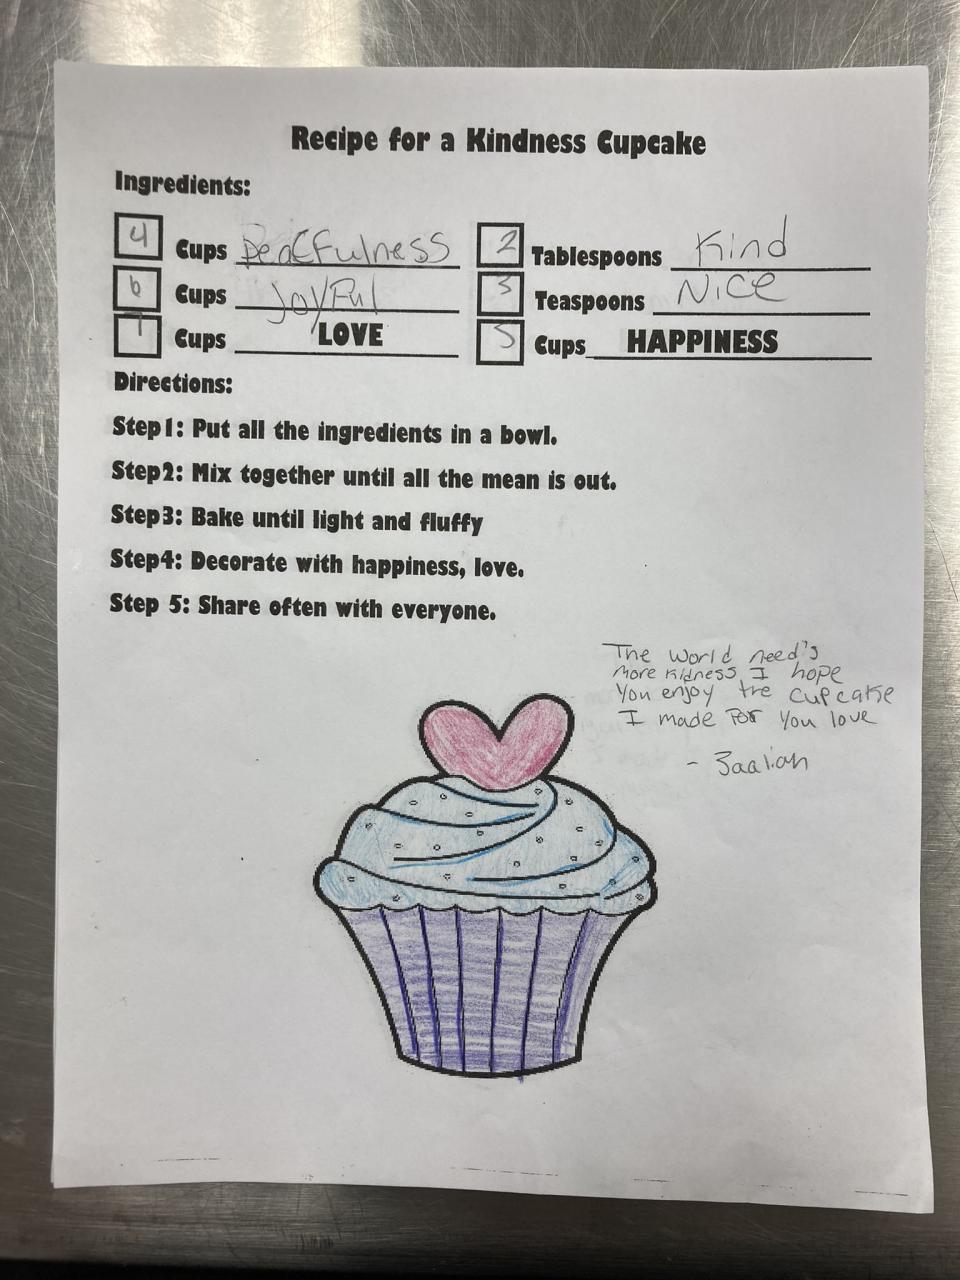 Recipe for a Kindness Cupcake
Ingredients:
4 Cups Peacfulness
2 Tablespoons Kind
6 Cups Joyful
3 Teaspoons Nice
1 Cups LOVE
5 Cups HAPPINESS
Directions:
Step1: Put all the ingredients in a bowl.
Step2: Mix together until all the mean is out.
Step3: Bake until light and fluffy
Step4: Decorate with happiness, love.
Step 5: Share often with everyone.
The world need's
more kidness I hope
You enjoy the cupcake
I made For you love
- Zaaliah